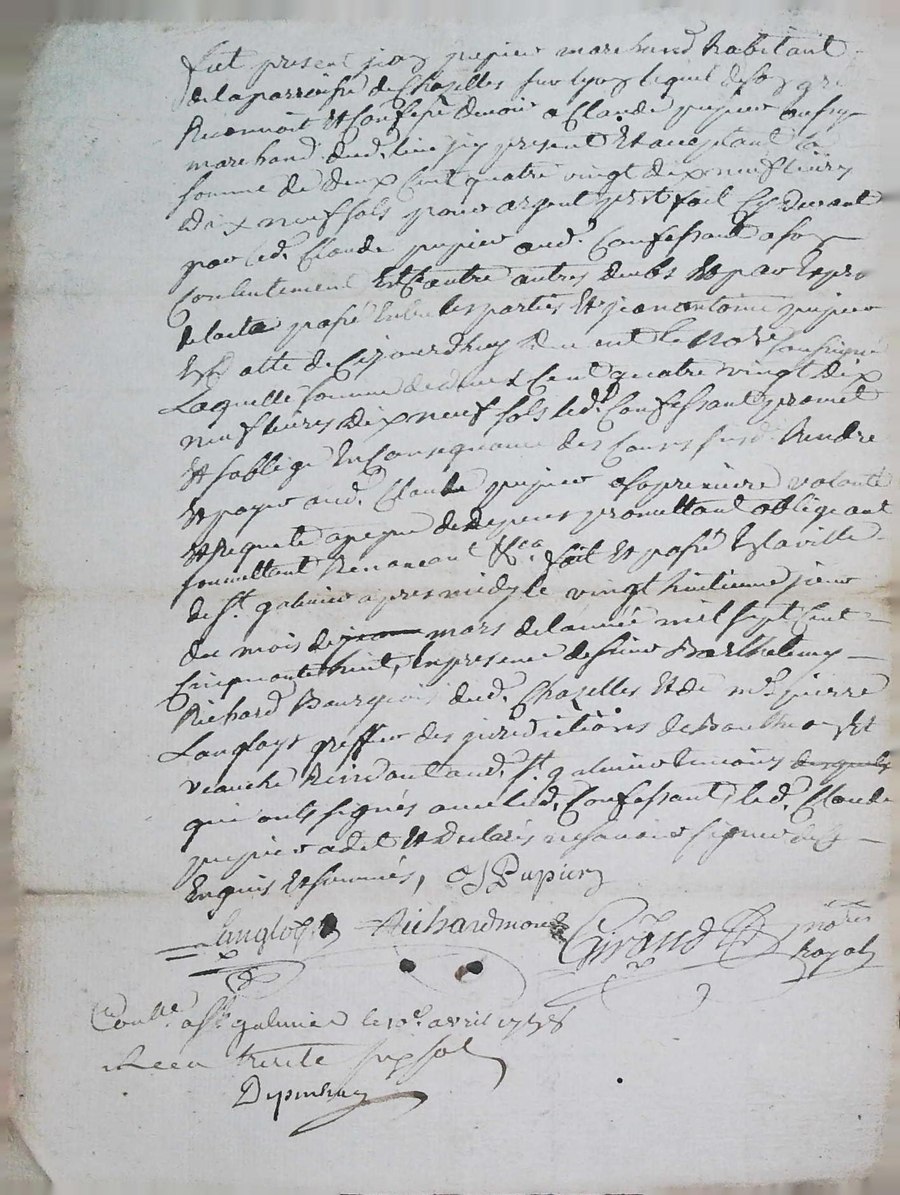 fut present jean pupier marchand habitant
de la parroisse de Chazelles sur lyon lequel de son gré
Reconnoit et Confesse devoir a Claude pupier
marchand dud. lieu icy present et acceptant la
somme de deux Cent quatre vingt dix neuf livres
dix neuf sols pour argent prest fait Cy devant
par led. Claude pupier aud. Confessant a son
Contentement et autres
de lacte passé entre les parties et jean antoine pupier
Et datte de Cejourdhuy le nore soussigné
Laquelle somme de deux Cent quatre vingt dix
neuf livres dix neuf sols led. Confessant promet
et soblige En Consequance des Cours susd. Rendre
et payer aud. Claude pupier a sa premiere volonté
et Requete a peyne de depens promettant obligeant
soumettant Renoncant &ca fait et passé En la ville
de st. galmier apres midy le vingt huitieme jour
du mois de mars de lannée mil sept Cent
Cinquante huit, En presence de sieur Barthelemy
Richard Bourgeois dud. Chazelles et de me. pierre
Langloys greffier des jurisdictions de Bouthéon et
veauche Residant aud. st. galmier temoins
qui ont signés avec led. Confessant, led. Claude
pupier a dit et declaré ne scavoir signer de ce
Enquis et sommés, J Pupier
Langloys Richard Giraud nore
Royal
Conllé. a st. galmier le 10e. avril 1758
Receu trente six sols